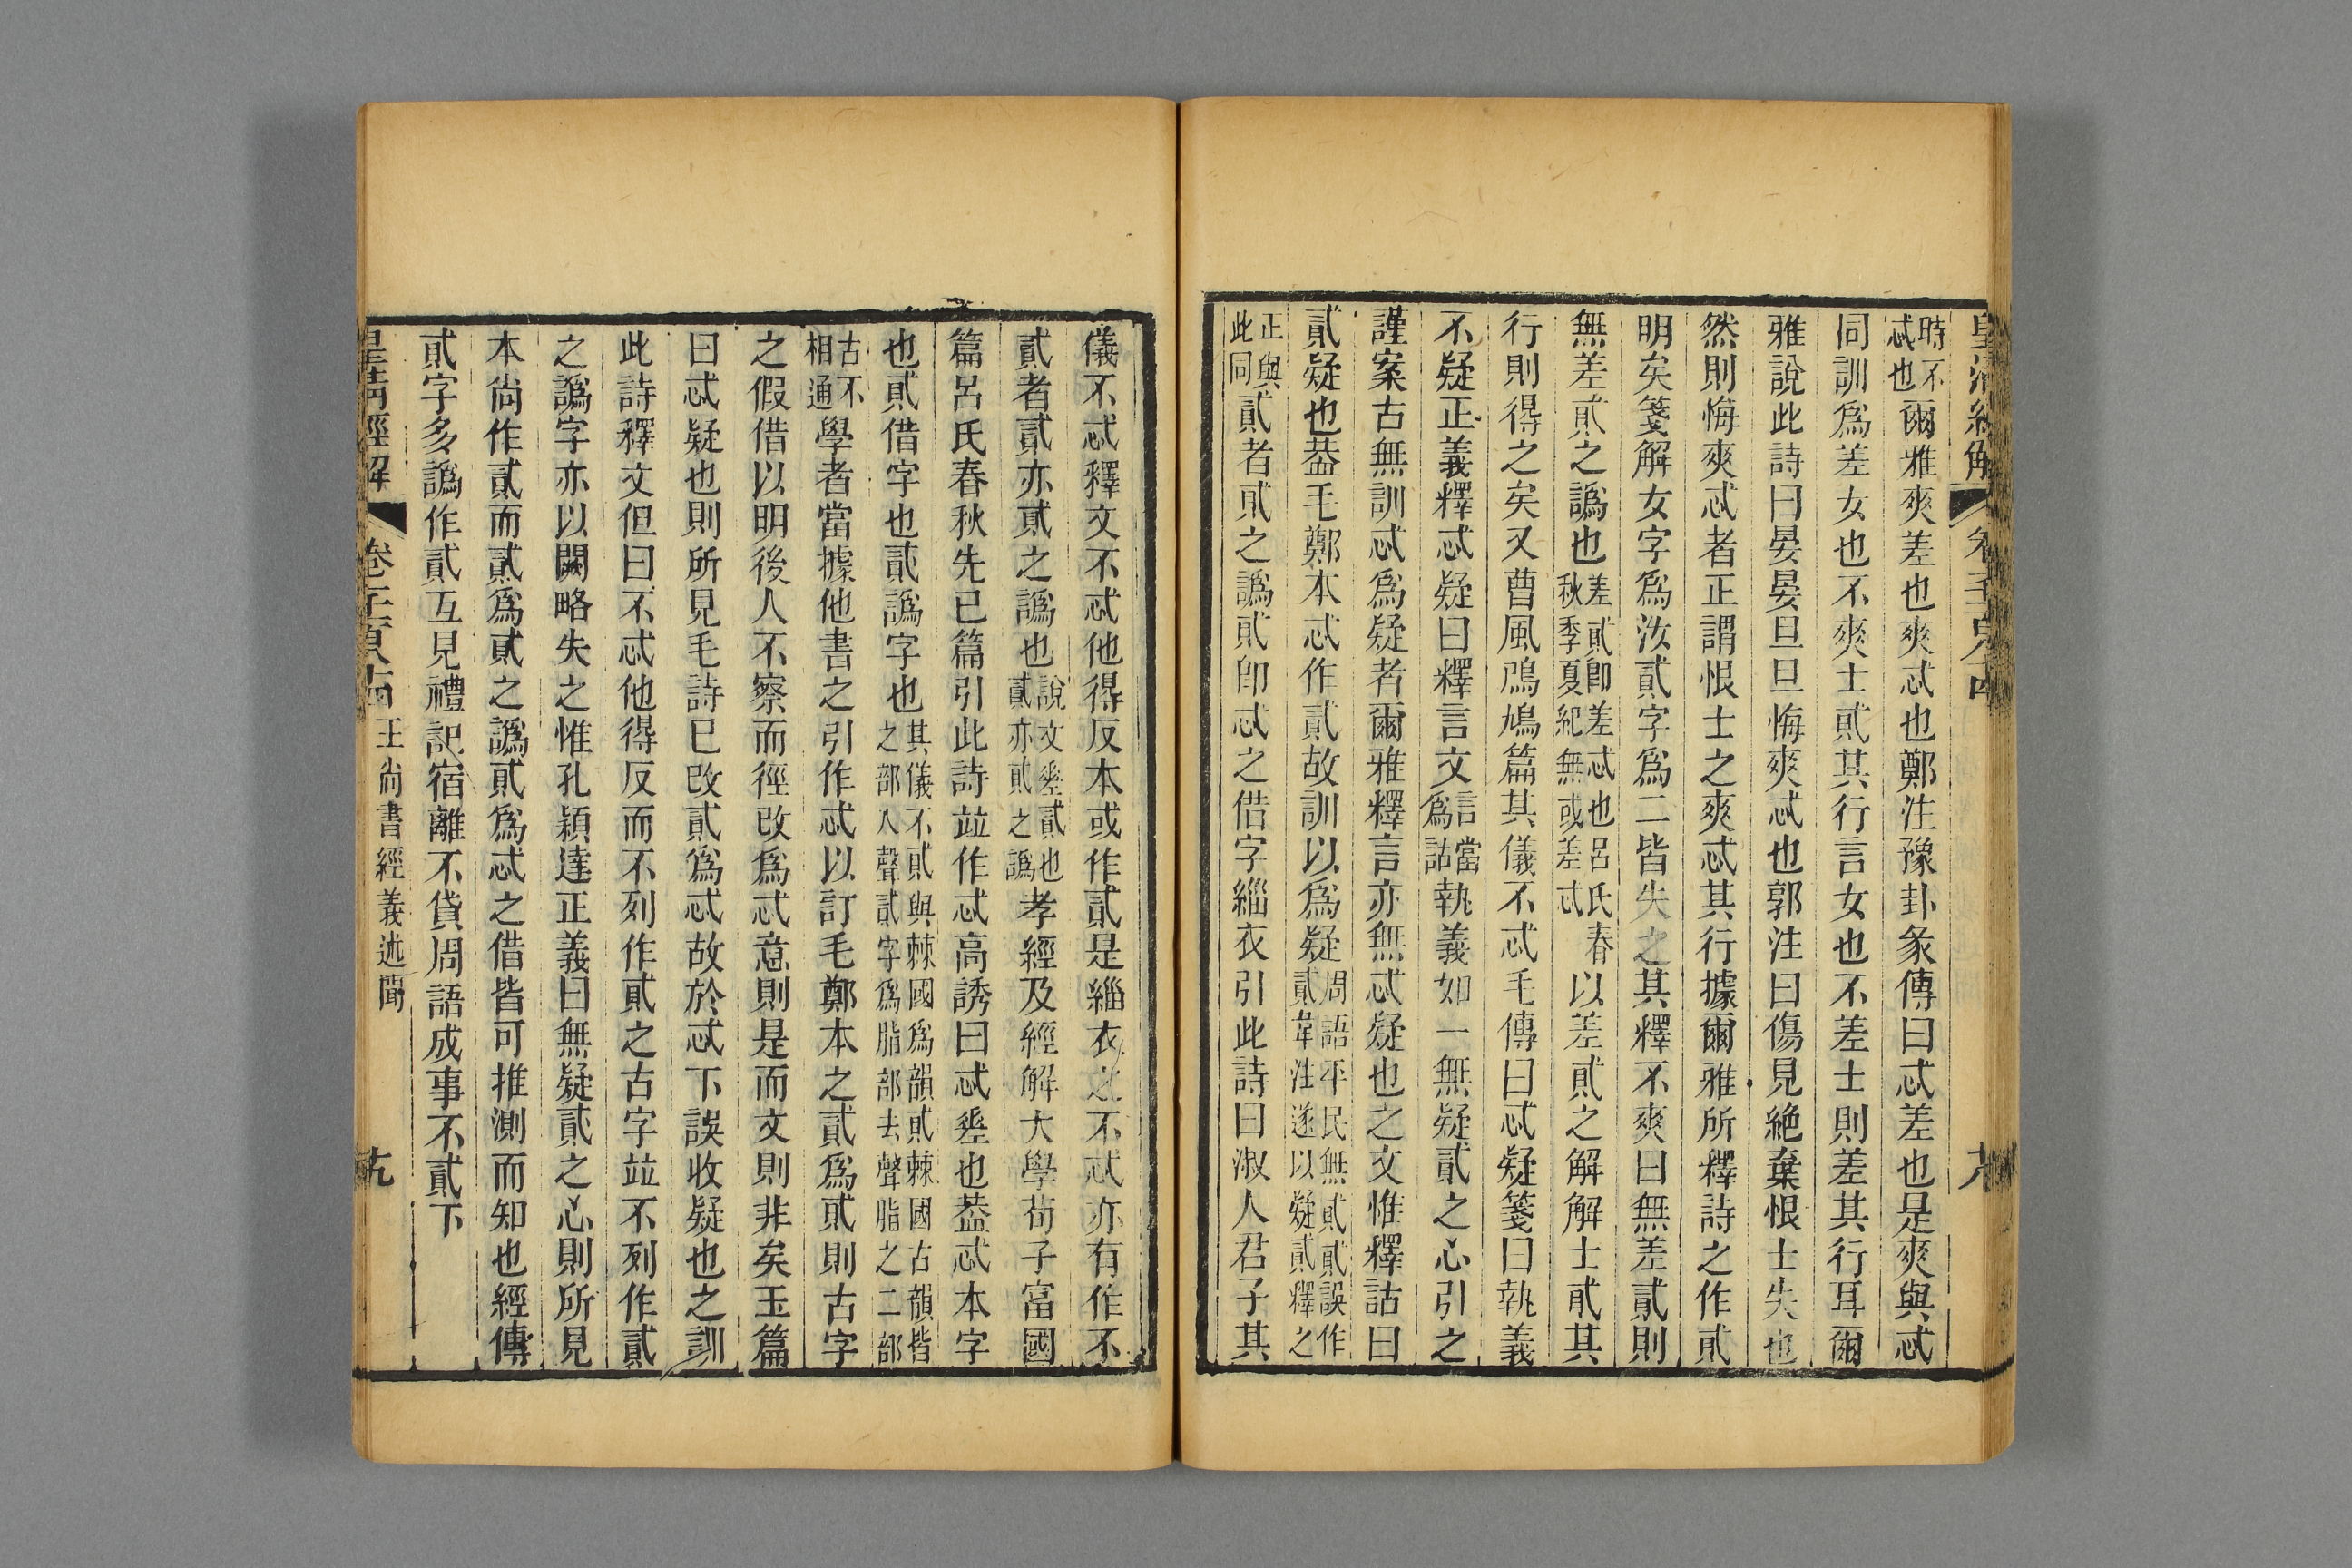 皇清經解
時不忒也爾雅爽差也爽忒也鄭注豫卦彖傳曰忒差也是爽與忒
同訓爲差女也不爽士貣其行言女也不差士則差其行耳爾
雅說此詩曰晏晏旦旦悔爽忒也郭注曰傷見絶棄恨士失也
然則悔爽忒者正謂恨士之爽忒其行據爾雅所釋詩之作貣
明矣箋解女字爲汝貳字爲二皆失之其釋不爽曰無差貳則
無差貣之譌也差貣卽差忒也呂氏春秋季夏紀無或差忒以差貣之解解士貣其
行則得之矣又曹風鳲鳩篇其儀不忒毛傳曰忒疑箋曰執義
不疑正義釋忒疑曰釋言文言當爲詁執義如一無疑貳之心引之
謹案古無訓忒爲疑者爾雅釋言亦無忒疑也之文惟釋詁曰
貳疑也葢毛鄭本忒作貳故訓以爲疑周語平民無貣貣誤作貳韋注遂以疑貳釋之
正與此同貳者貣之譌貣卽忒之借字緇衣引此詩曰淑人君子其
儀不忒釋文不忒他得反本或作貳是緇衣之不忒亦有作不
貳者貳亦貣之譌也說文㐌貳也貳亦貣之譌孝經及經解大學荀子富國
篇呂氏春秋先已篇引此詩竝作忒高誘曰忒差也葢忒本字
也貣借字也貳譌字也其儀不貣與棘國爲韻貣棘國古韻皆之部入聲貳字爲脂部去聲脂之二部
古不相通學者當據他書之引作忒以訂毛鄭本之貳爲貣則古字
之假借以明後人不察而徑改爲忒意則是而文則非矣玉篇
曰忒疑也則所見毛詩已改貳爲忒故於忒下誤收疑也之訓
此詩釋文但曰不忒他得反而不列作貣之古字竝不列作貳
之譌字亦以闕略失之惟孔穎達正義曰無疑貳之心則所見
本尙作貳而貳爲貣之譌貣爲忒之借皆可推測而知也經傳
貣字多譌作貳互見禮記宿離不貸周語成事不貳下
皇清經解 王尙書經義述聞 十九